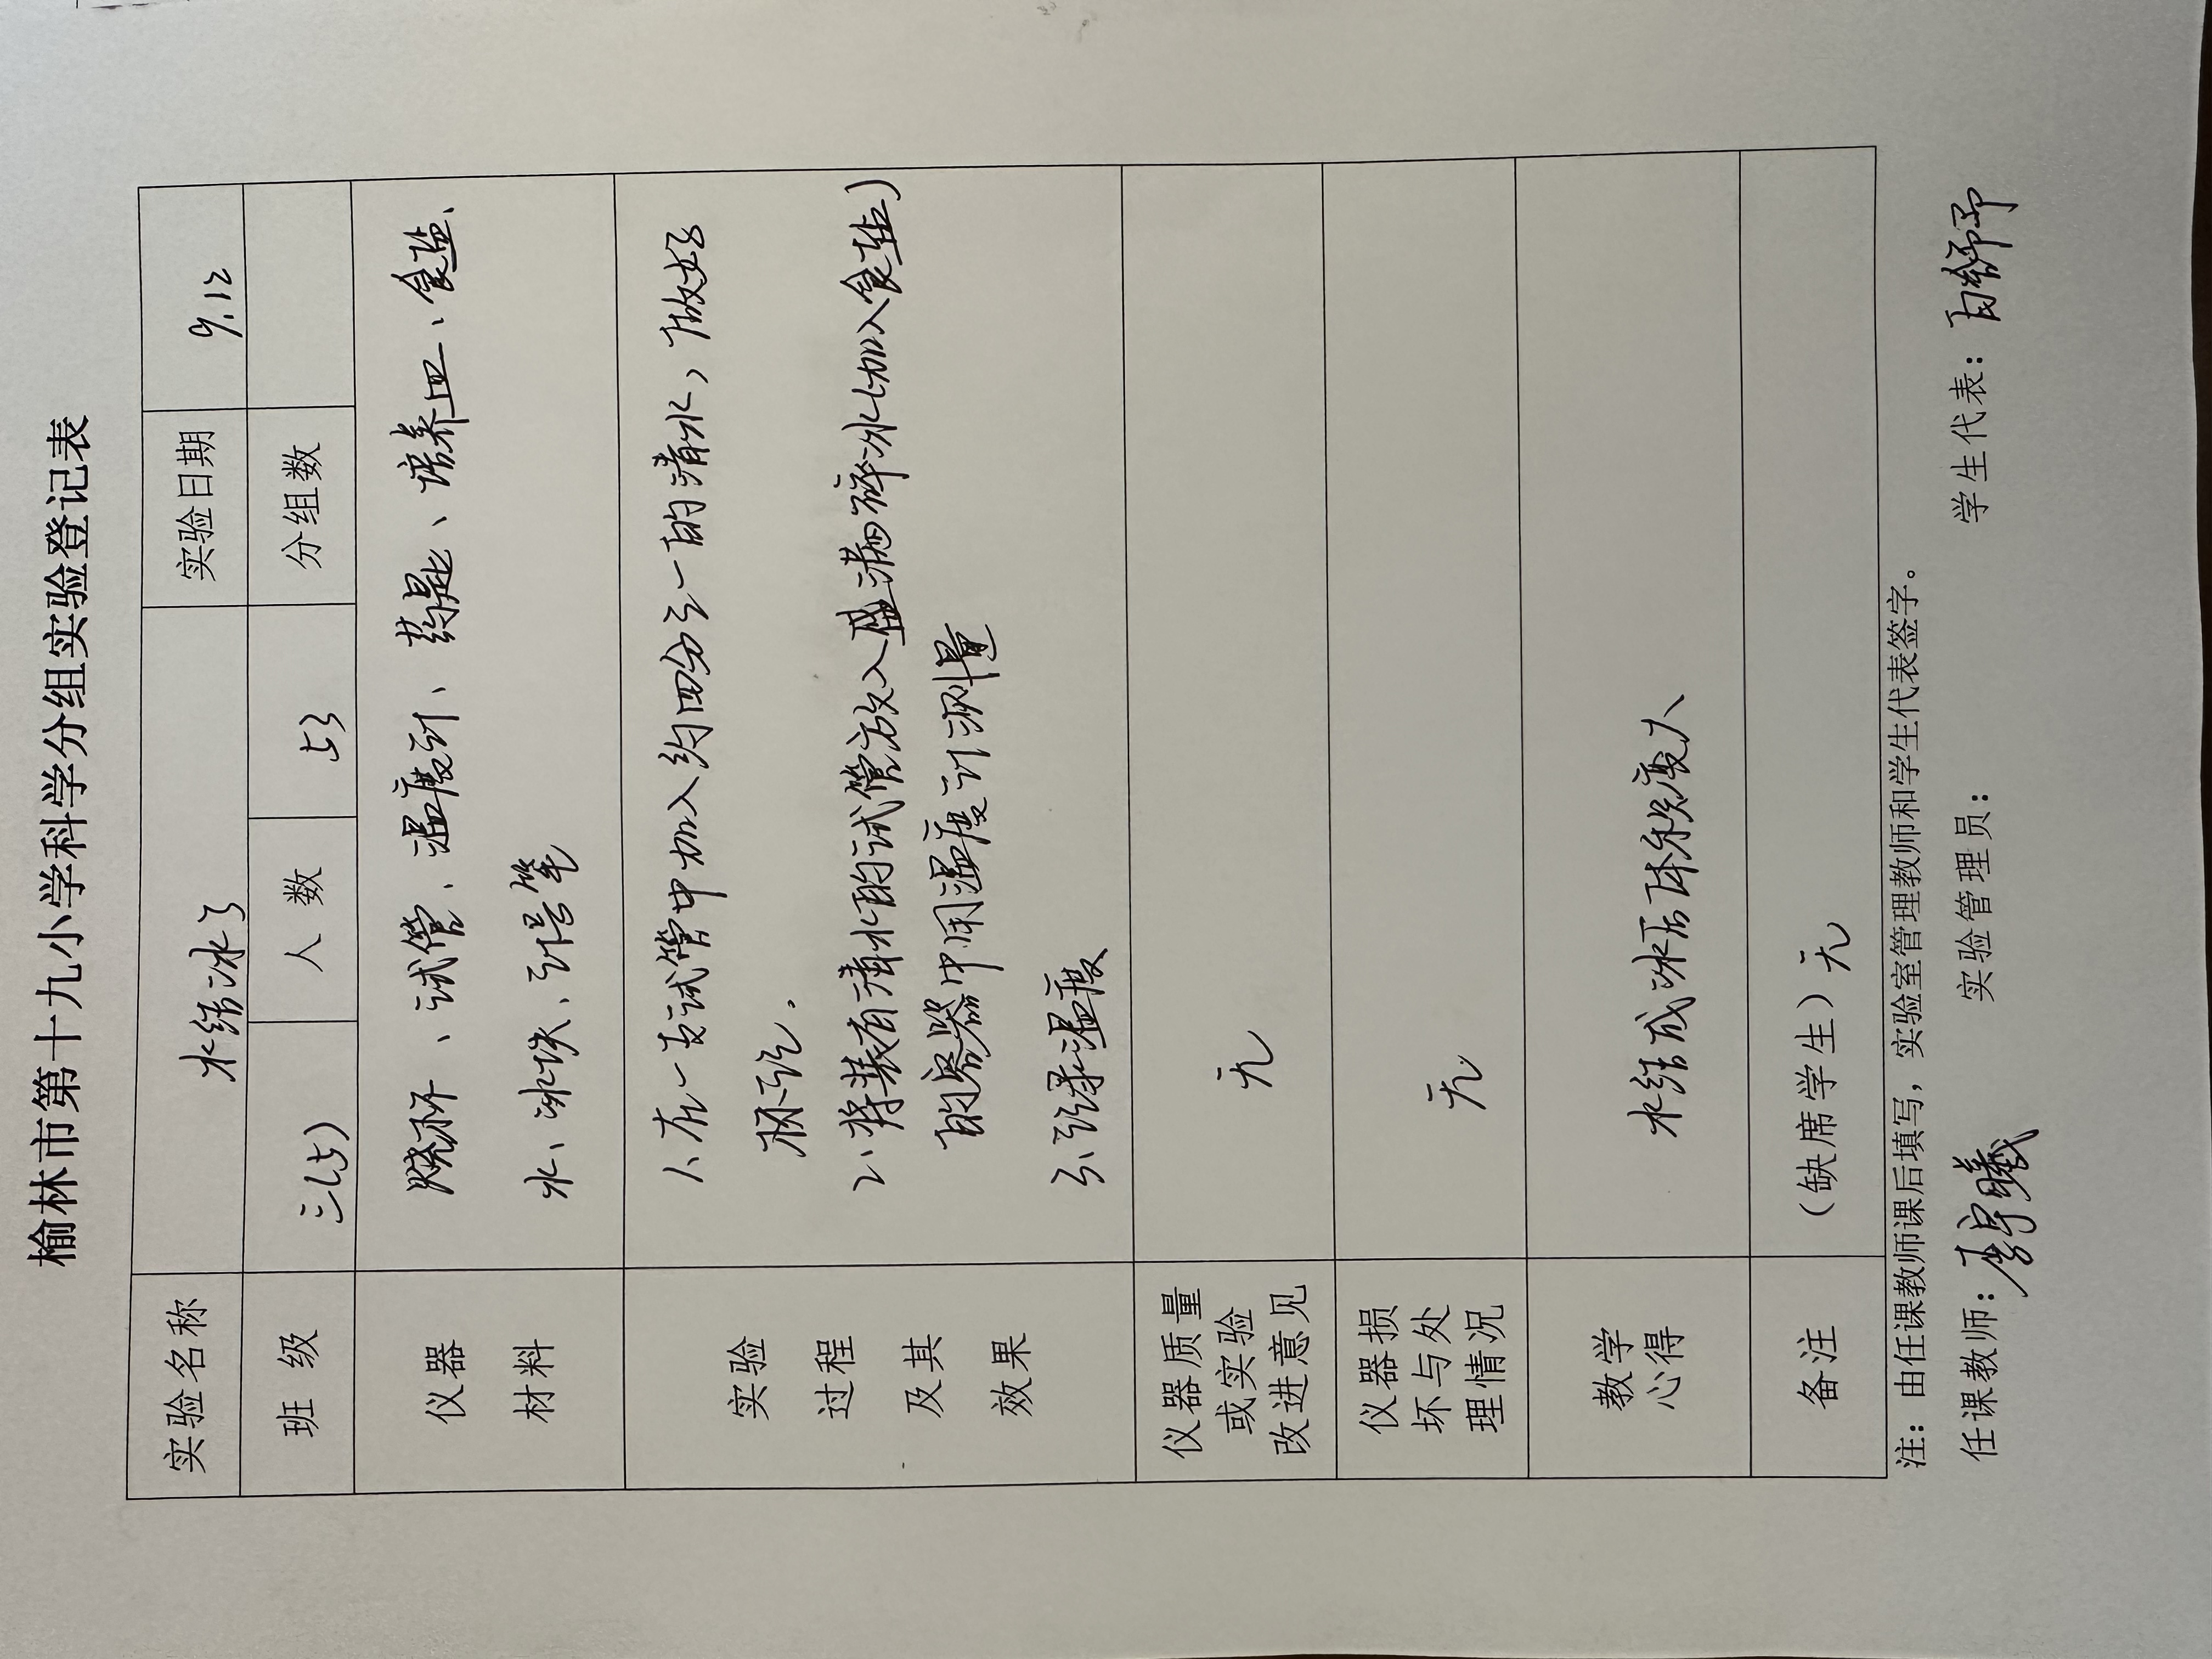 榆林市第十九小学科学分组实验登记表
实验名称 水结冰了 实验日期 9.12
班 级 三(5) 人 数 53 分组数
仪器
材料
烧杯、试管、温度计、药匙、培养皿、食盐、
水、冰块、记号笔
实验
过程
及其
效果
1、在一支试管中加入约四分之一的清水，做好
标记。
2、将装有清水的试管放入盛满碎冰(加入食盐)
的容器中用温度计测量
3、记录温度
仪器质量
或实验
改进意见
无
仪器损
坏与处
理情况
无
教学
心得
水结成冰后体积变大
备注 （缺席学生）无
注：由任课教师课后填写，实验室管理教师和学生代表签字。
任课教师： 实验管理员： 学生代表：白舒予